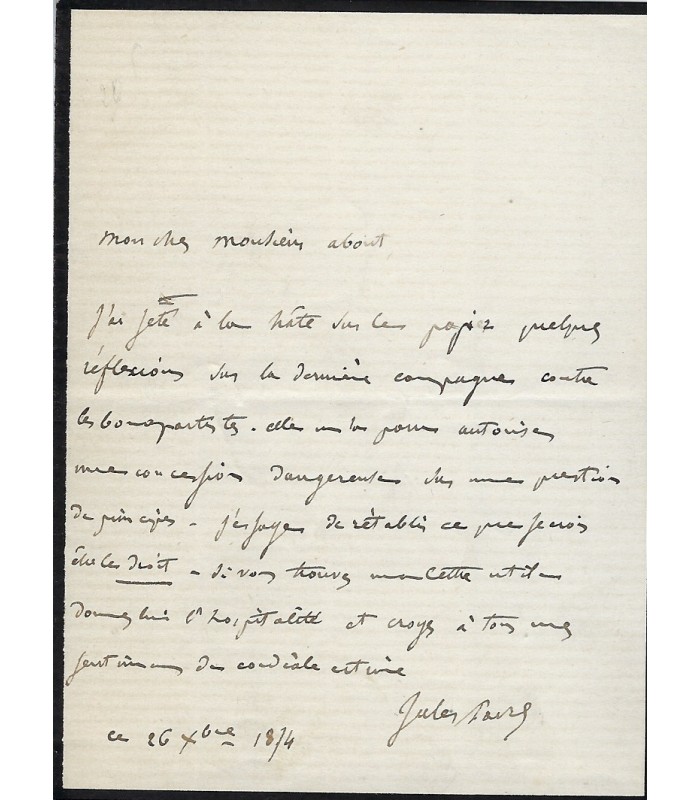 mon cher monsieur about
j'ai jeté à la hâte sur le papier quelques
réflexions sur la dernière campagne contre
les bonapartistes. elle m'a paru autoriser
une concession dangereuse sur une question
de principes - j'essaye de rétablir ce que je crois
être le droit - si vous trouvez ma lettre utile
donnez lui l'hospitalité et croyez à tous mes
sentimens de cordiale estime
Jules Favre
ce 26 Xbre 1874